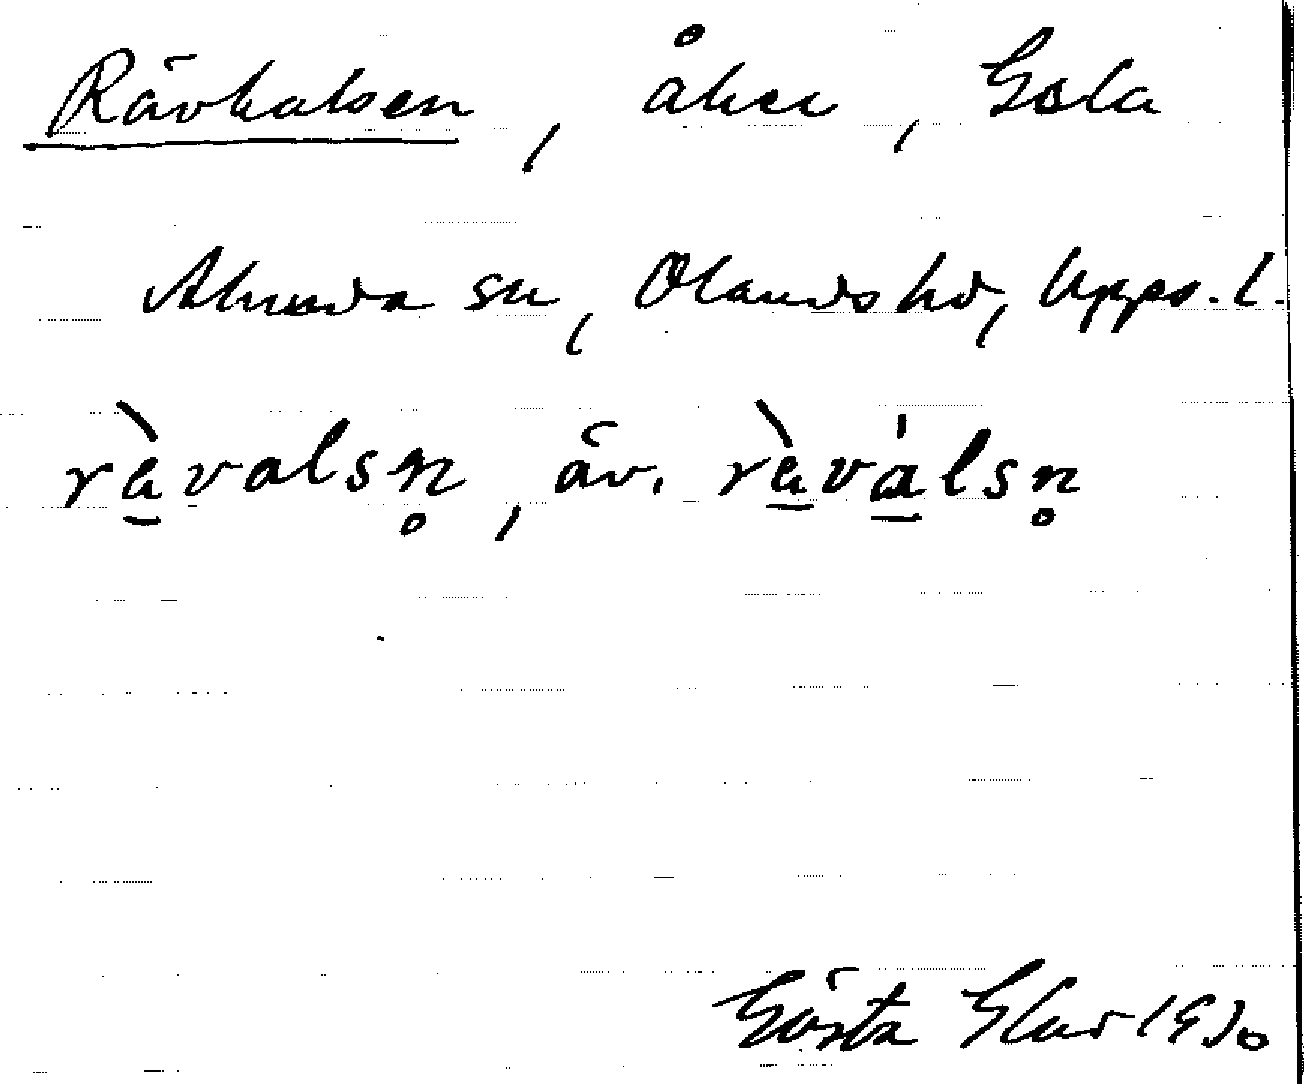 Rävhalsen, åker, Gola
Alunda sn, Olands hd, Upps. l.
ràvalsn̥, äv. ràválsn̥
Gösta Glad 1930